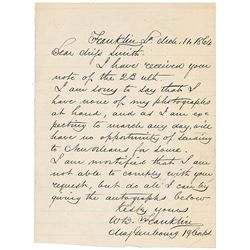 Franklin La. Mch. 11. 1864
Dear Miss Smith.
I have received your
note of the 23 ult.
I am sorry to say that I
have none of my photographs
at hand, and as I am ex-
pecting to march any day, will
have no opportunity of sending
to N. Orleans for some.
I am mortified that I am not
able to comply with your
request, but do all I can by
giving the autographs below
Resty yours
W.B. Franklin
Maj Gen 19